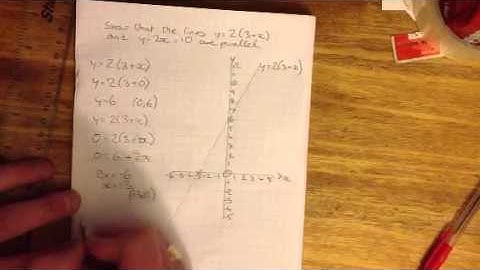 Show that the lines y=2(3+x)
and y-2x=10 are parallel
y=2(3+x)
y=2(3+0)
y=6 (0,6)
y=2(3+x)
0=2(3+x)
0=6+2x
2x=-6
x=-3
y=2(3+x)